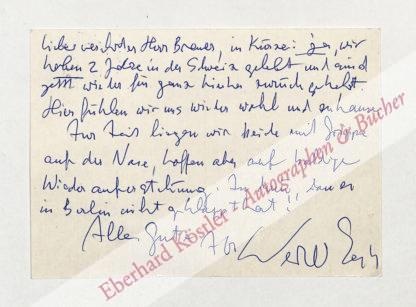 lieber verehrter Herr Brauer, in Kürze: ja, wir
haben 2 Jahre in der Schweiz gelebt und sind
jetzt wieder für ganz hierher zurückgekehrt.
Hier fühlen wir uns wieder wohl und zuhause
Zur Zeit liegen wir beide mit Grippe
auf der Nase, hoffen aber auf
Wiederauferstehung.
in Berlin nicht geklappt hat!!
Alles Gute Ihr
Eberhard Köstler - Autographen & Bücher